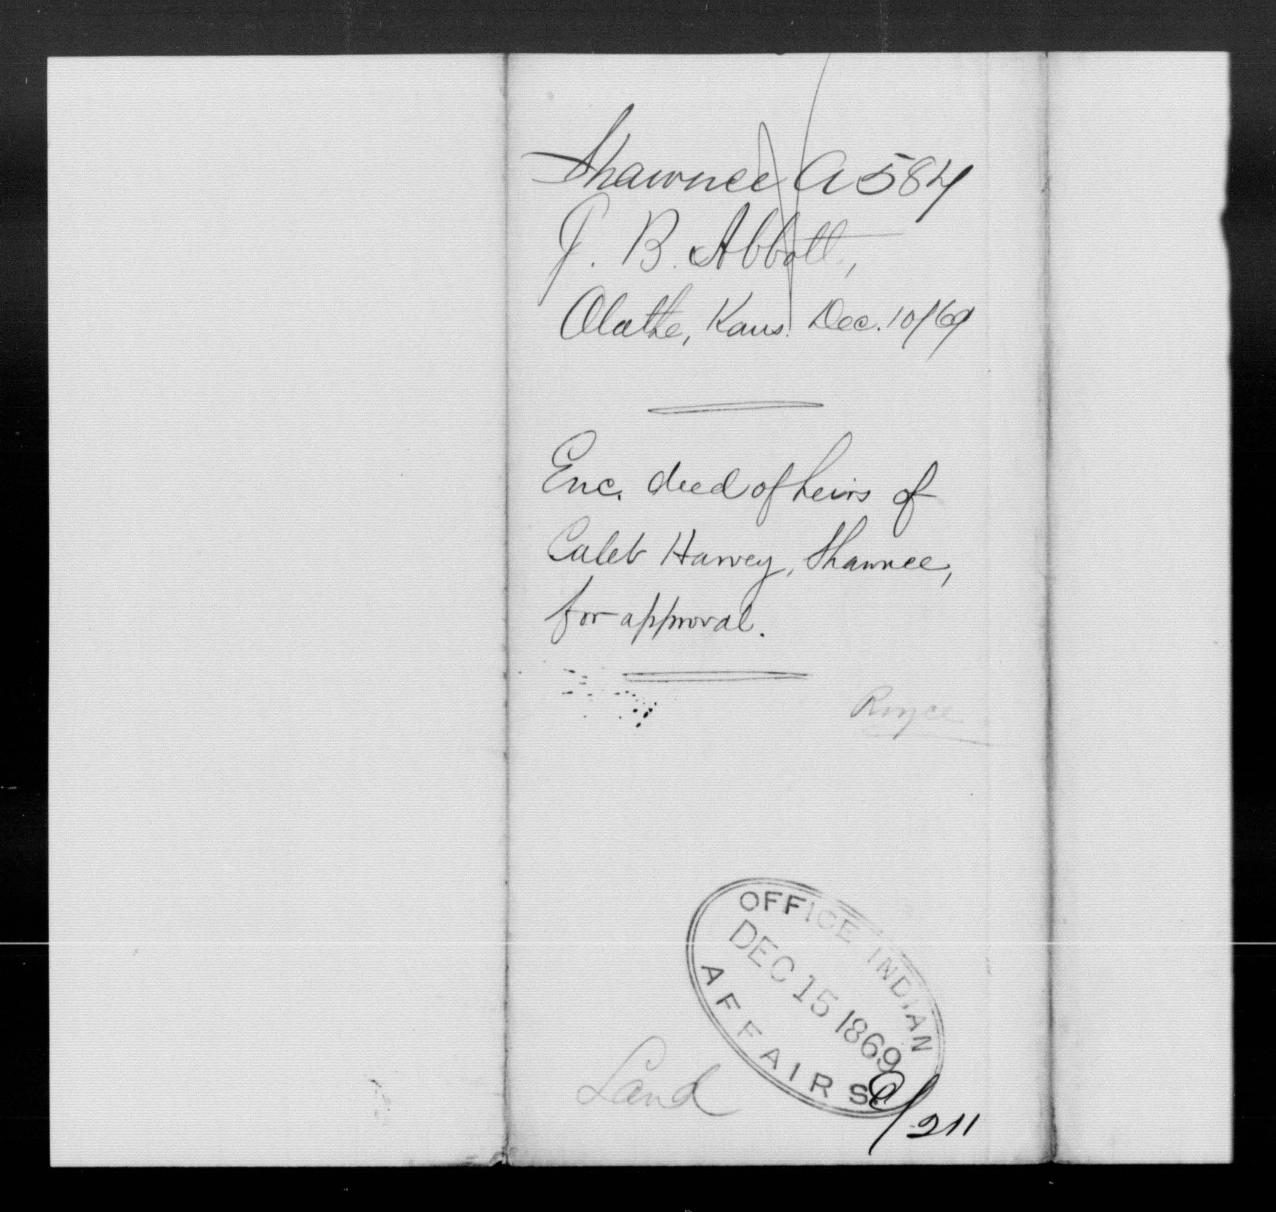 Shawnee A 584
J. B. Abbott,
Olathe, Kans. Dec. 10/69
Enc. deed of heirs of
Caleb Harvey, Shawnee,
for approval.
Royce
OFFICE INDIAN
DEC 15 1869
AFFAIRS
Land
C/211